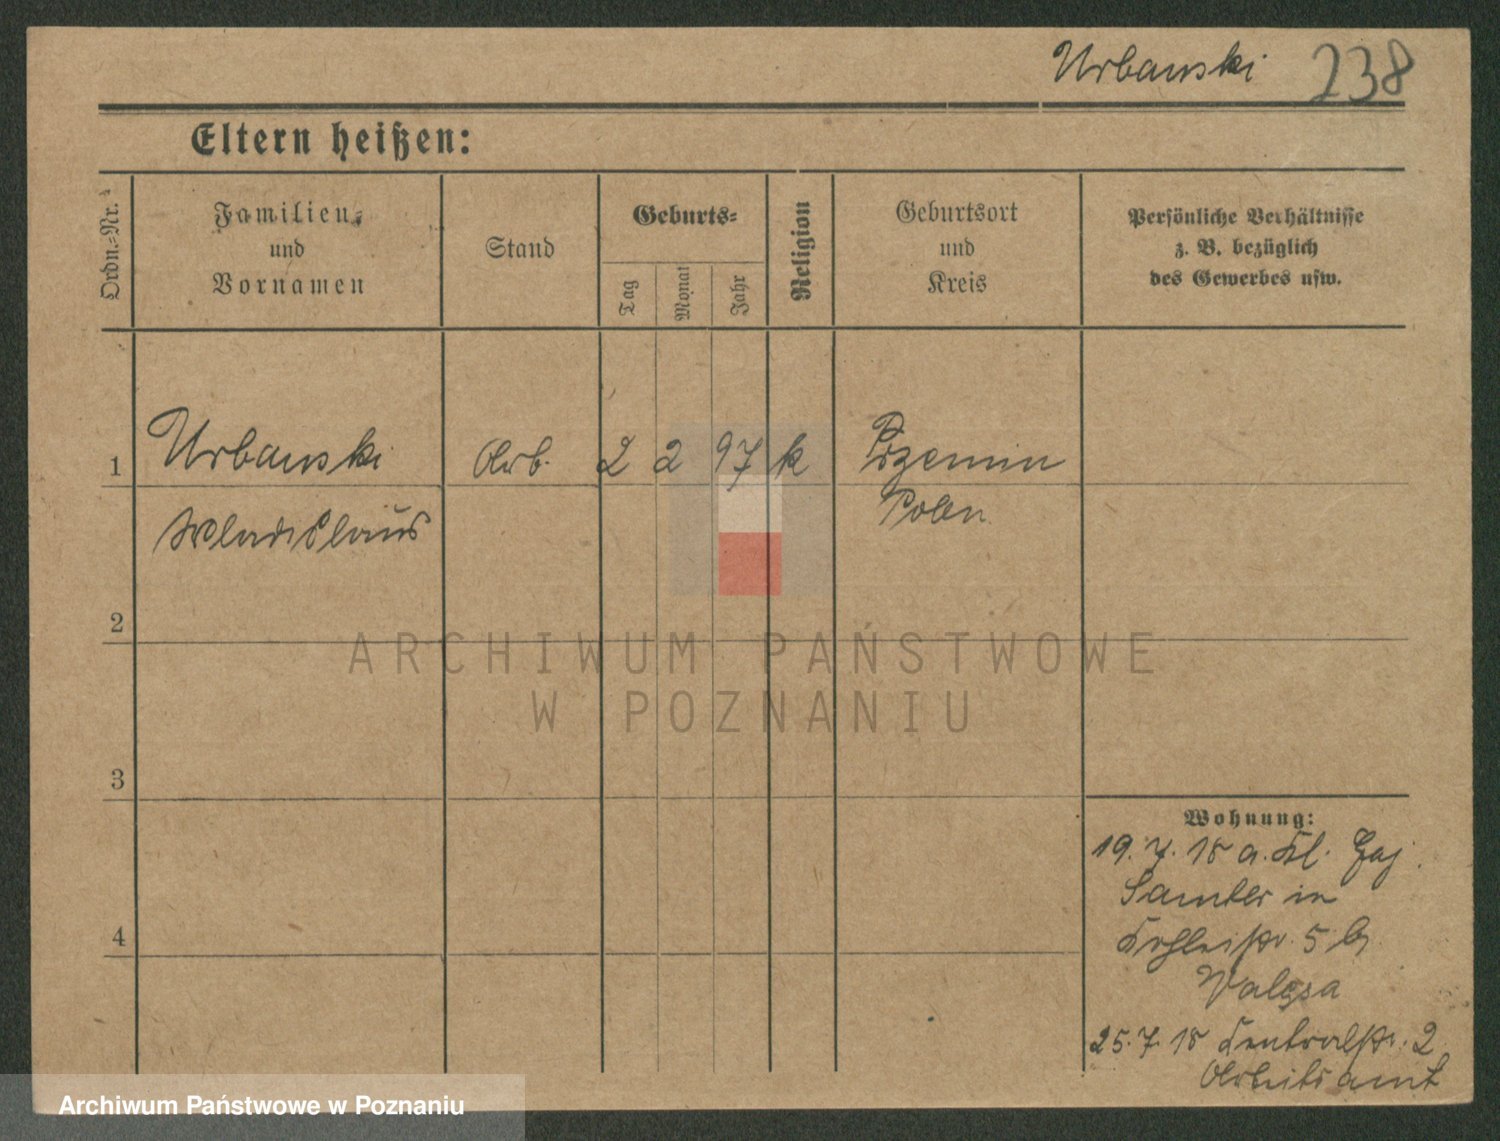 Urbanski 238
Eltern heißen:
Ordn.=Nr.
Familien=
und
Vornamen
Stand
Geburts=
Tag
Monat
Jahr
Religion
Geburtsort
und
Kreis
Persönliche Verhältnisse
z. B. bezüglich
des Gewerbes usw.
1 Urbanski Arb. 2 2 97 k
Polen
Wladislaus
2
3
4
Wohnung:
19.7.18 a. Kl. Gaj
Samter in
5 b
25.7.18 2
Arbeitsamt
ARCHIWUM PAŃSTWOWE
W POZNANIU
Archiwum Państwowe w Poznaniu